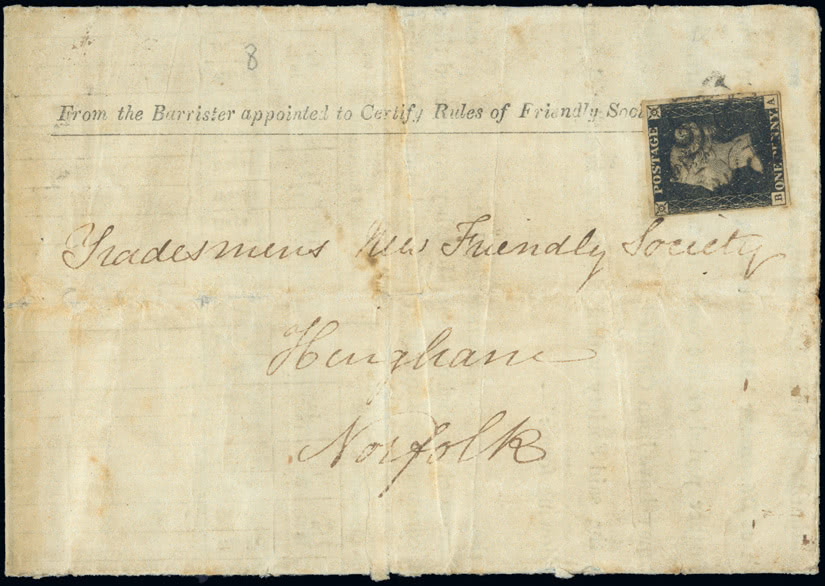 8
From the Barrister appointed to Certify Rules of Friendly Soci
POSTAGE
ONE PENNY
B A
Tradesmens New Friendly Society
Hingham
Norfolk